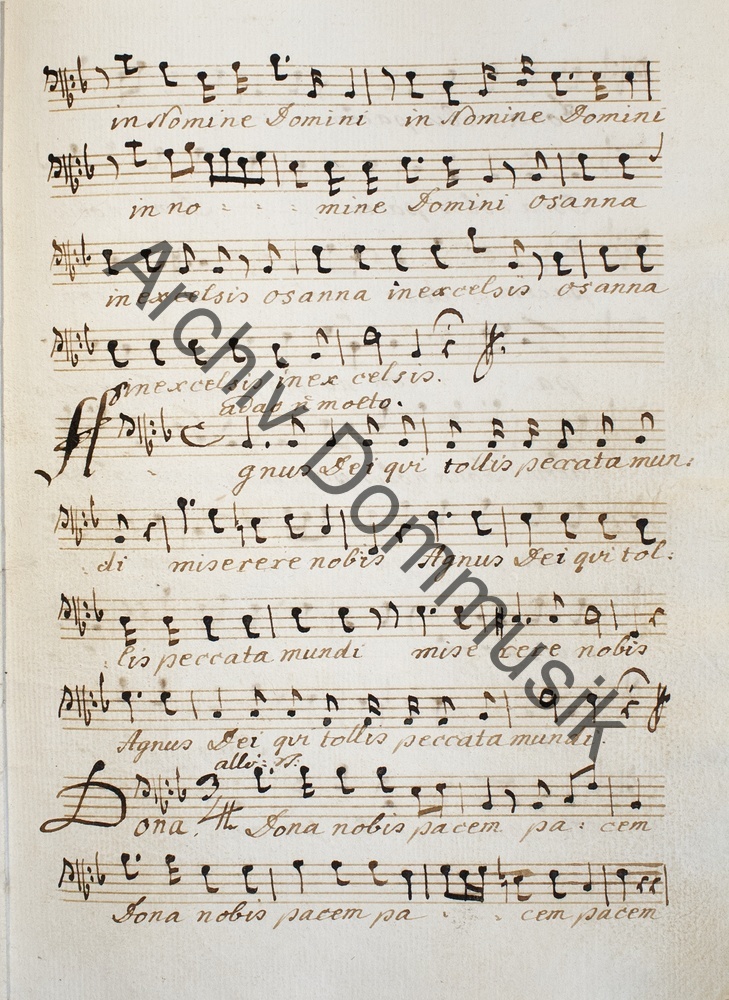 in Nomine Domini in Nomine Domini
in no - - - mine Domini osanna
in excelsis osanna in excelsis osanna
in excelsis in ex celsis.
adag: molto.
gnus Dei qui tollis peccata mun:
di miserere nobis Agnus Dei qui tol:
lis peccata mundi mise rere nobis
Agnus Dei qui tollis peccata mundi.
allo:
Dona 3/4 Dona nobis pacem pa: cem
Dona nobis pacem pa - - - cem pacem
Archiv Dommusik